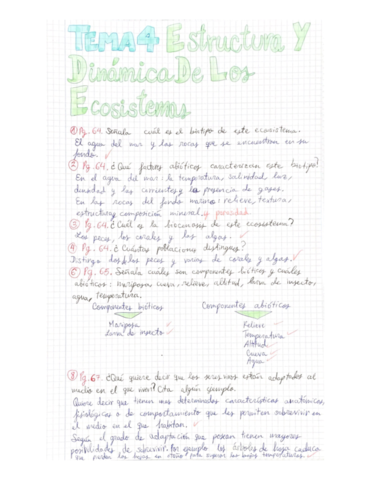 TEMA 4 Estructura Y
Dinámica De Los
Ecosistemas
① Pg. 64. Señala cuál es el biotopo de este ecosistema.
El agua del mar y las rocas que se encuentran en su
fondo.
② Pg. 64. ¿Qué factores abióticos caracterizan este biotopo?
En el agua del mar: la temperatura, salinidad, luz,
densidad y las corrientes y la presencia de gases.
En las rocas del fondo marino: relieve, textura,
estructura, composición mineral y porosidad.
③ Pg. 64. ¿Cuál es la biocenosis de este ecosistema?
Los peces, los corales y las algas.
④ Pg. 64. ¿Cuántas poblaciones distingues?
Distingo peces y varias de corales y algas.
⑥ Pg. 65. Señala cuáles son componentes bióticos y cuáles
abióticos: mariposa, cueva, relieve, altitud, larva de insecto,
agua, temperatura.
Componentes bióticos Componentes abióticos
Mariposa Relieve
Larva de insecto Temperatura
Altitud
Cueva
Agua
⑧ Pg. 67. ¿Qué quiere decir que los seres vivos están adaptados al
medio en el que viven? Cita algún ejemplo.
Quiere decir que tienen unas determinadas características anatómicas,
fisiológicas o de comportamiento que les permiten sobrevivir en
el medio en el que habitan.
Según el grado de adaptación que posean tienen mayores
posibilidades de sobrevivir. Por ejemplo los árboles de hoja caduca
pierden las hojas en otoño para superar las bajas temperaturas.